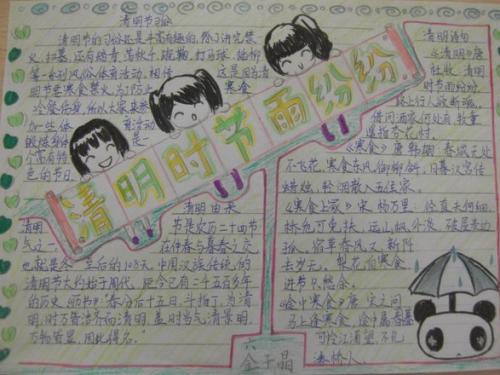 清明节习俗
清明节的习俗是丰富有趣的,除了讲究禁
火、扫墓,还有踏青、荡秋千、蹴鞠、打马球、插柳
等一系列风俗体育活动。相传
这是因为清
明节要寒食禁火,为了防止
寒食
冷餐伤身,所以大家来参
加一些体
育活动,
锻炼身体
的节日。
清明时节雨纷纷
清明由来
清明
节是农历二十四节
气之一
在仲春与暮春之交,
也就是冬
至后的108天。中国汉族传统的
清明节大约始于周代,距今已有二千五百多年
的历史。
春分后十五日,斗指丁,为清
明,时万物皆洁齐而清明,盖时当气清景明,
万物皆显,因此得名。"
清明诗句
《清明》唐
杜牧 清明
时节雨纷纷,
路上行人欲断魂。
借问酒家何处有,牧童
遥指杏花村。
《寒食》唐 韩翃:春城无处
不飞花,寒食东风御柳斜,日暮汉宫传
蜡烛,轻烟散入五侯家。
宋 杨万里
远山枫外淡,破屋麦边
孤。宿草春风又,新阡
去岁无。梨花自寒食,
进节只愁余。
途中寒食》唐 宋之问
马上逢寒食,途中属暮春
可怜江浦望,不见
洛桥人。
六
金子晶